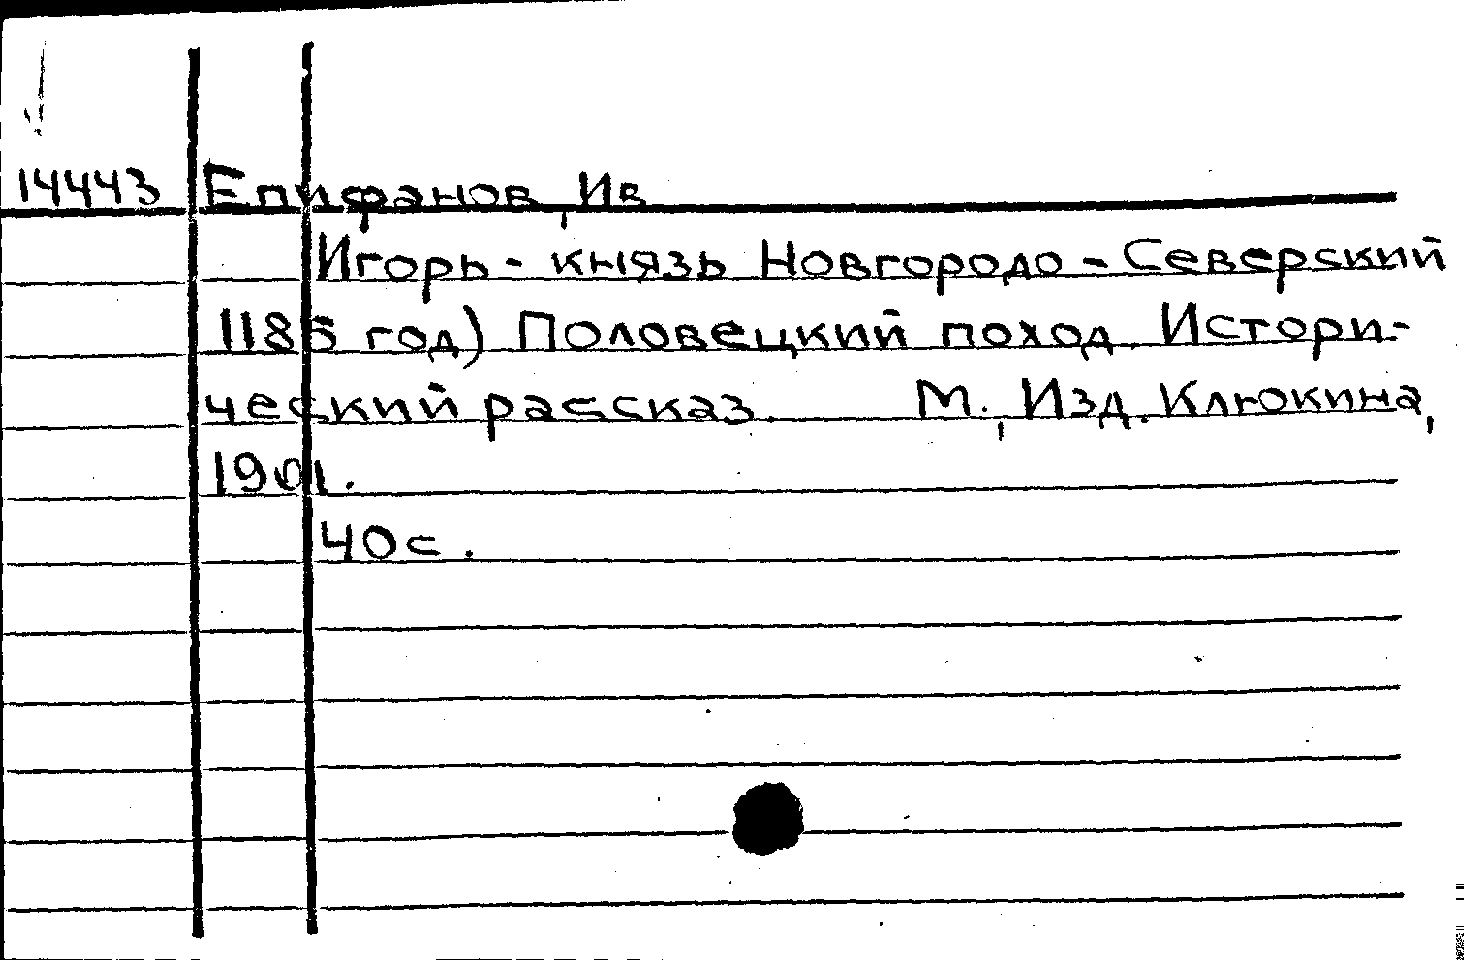 14443 Епифанов, Ив
Игорь - князь Новгородо - Северский
1185 год) Половецкий поход. Истори-
ческий рассказ. М., Изд. Клюкина,
1901.
40с.